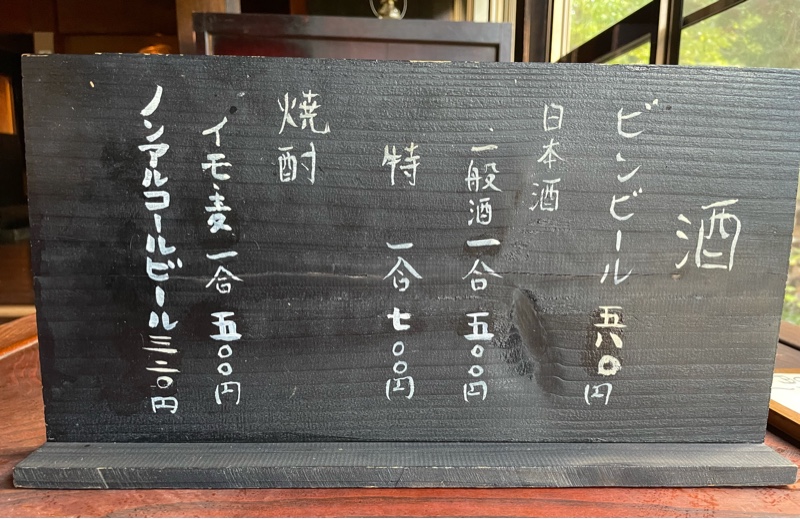 酒
ビンビール 五八〇円
日本酒
一般酒 一合 五〇〇円
特 一合 七〇〇円
焼酎
イモ・麦 一合 五〇〇円
ノンアルコールビール 三二〇円